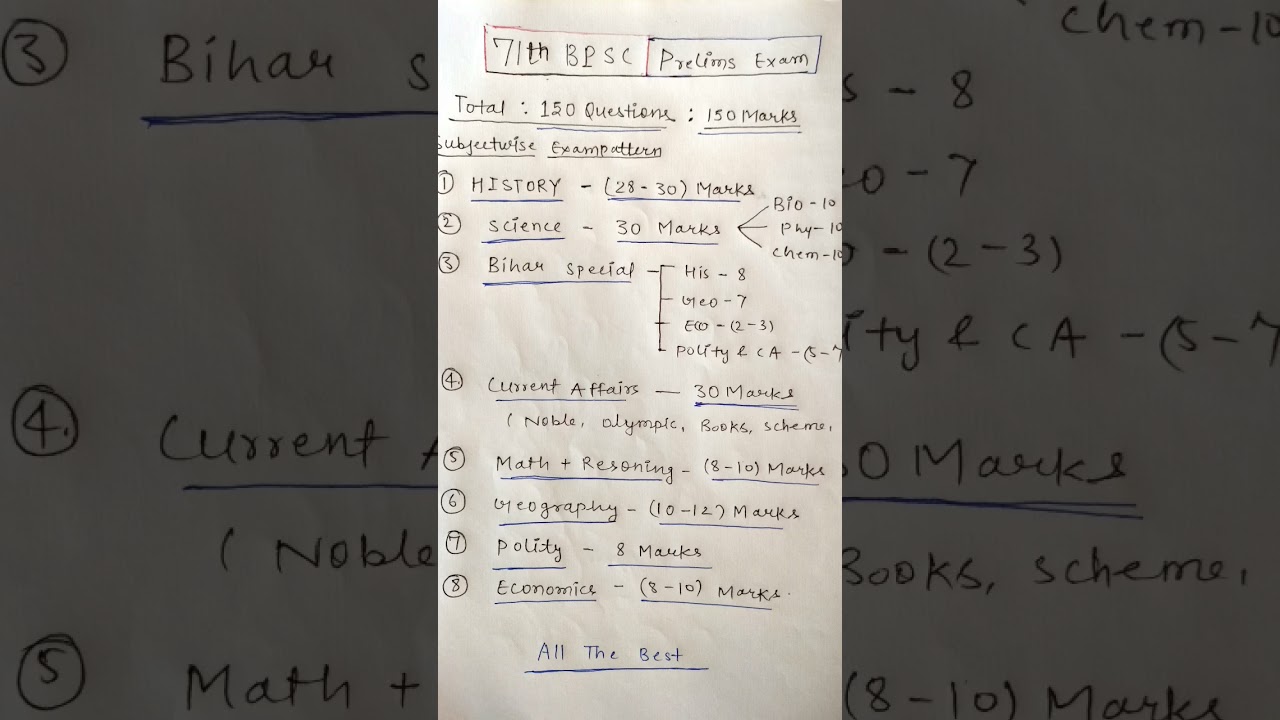 71th BPSC Prelims Exam
Total : 150 Questions : 150 Marks
Subjectwise Exampattern
① HISTORY - (28-30) Marks
② Science - 30 Marks
Bio - 10
Phy - 10
Chem - 10
③ Bihar special
His - 8
Geo - 7
Eco - (2-3)
Polity & CA - (5-7
④ Current Affairs — 30 Marks
( Noble, Olympic, Books, scheme,
⑤ Math + Resoning - (8-10) Marks
⑥ Geography - (10-12) Marks
⑦ Polity - 8 Marks
⑧ Economics - (8-10) Marks.
All The Best
③ Bihar s
④. Current A
( Noble
⑤ Math +
Chem - 10
s - 8
eo - 7
- (2-3)
ity & CA - (5-7
30 Marks
Books, scheme,
(8-10) Marks